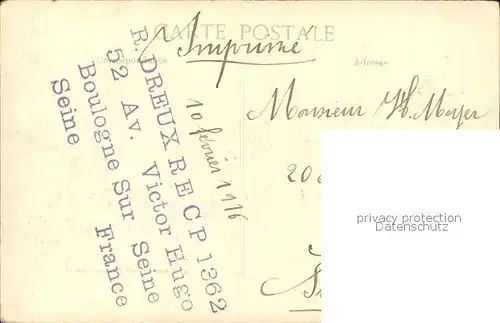 CARTE POSTALE
Imprimé
Correspondance
Adresse
R. DREUX R E C P 1362
52 Av. Victor Hugo
Boulogne Sur Seine
Seine France
10 février 1916
Monsieur H. Meijer
20
privacy protection
Datenschutz